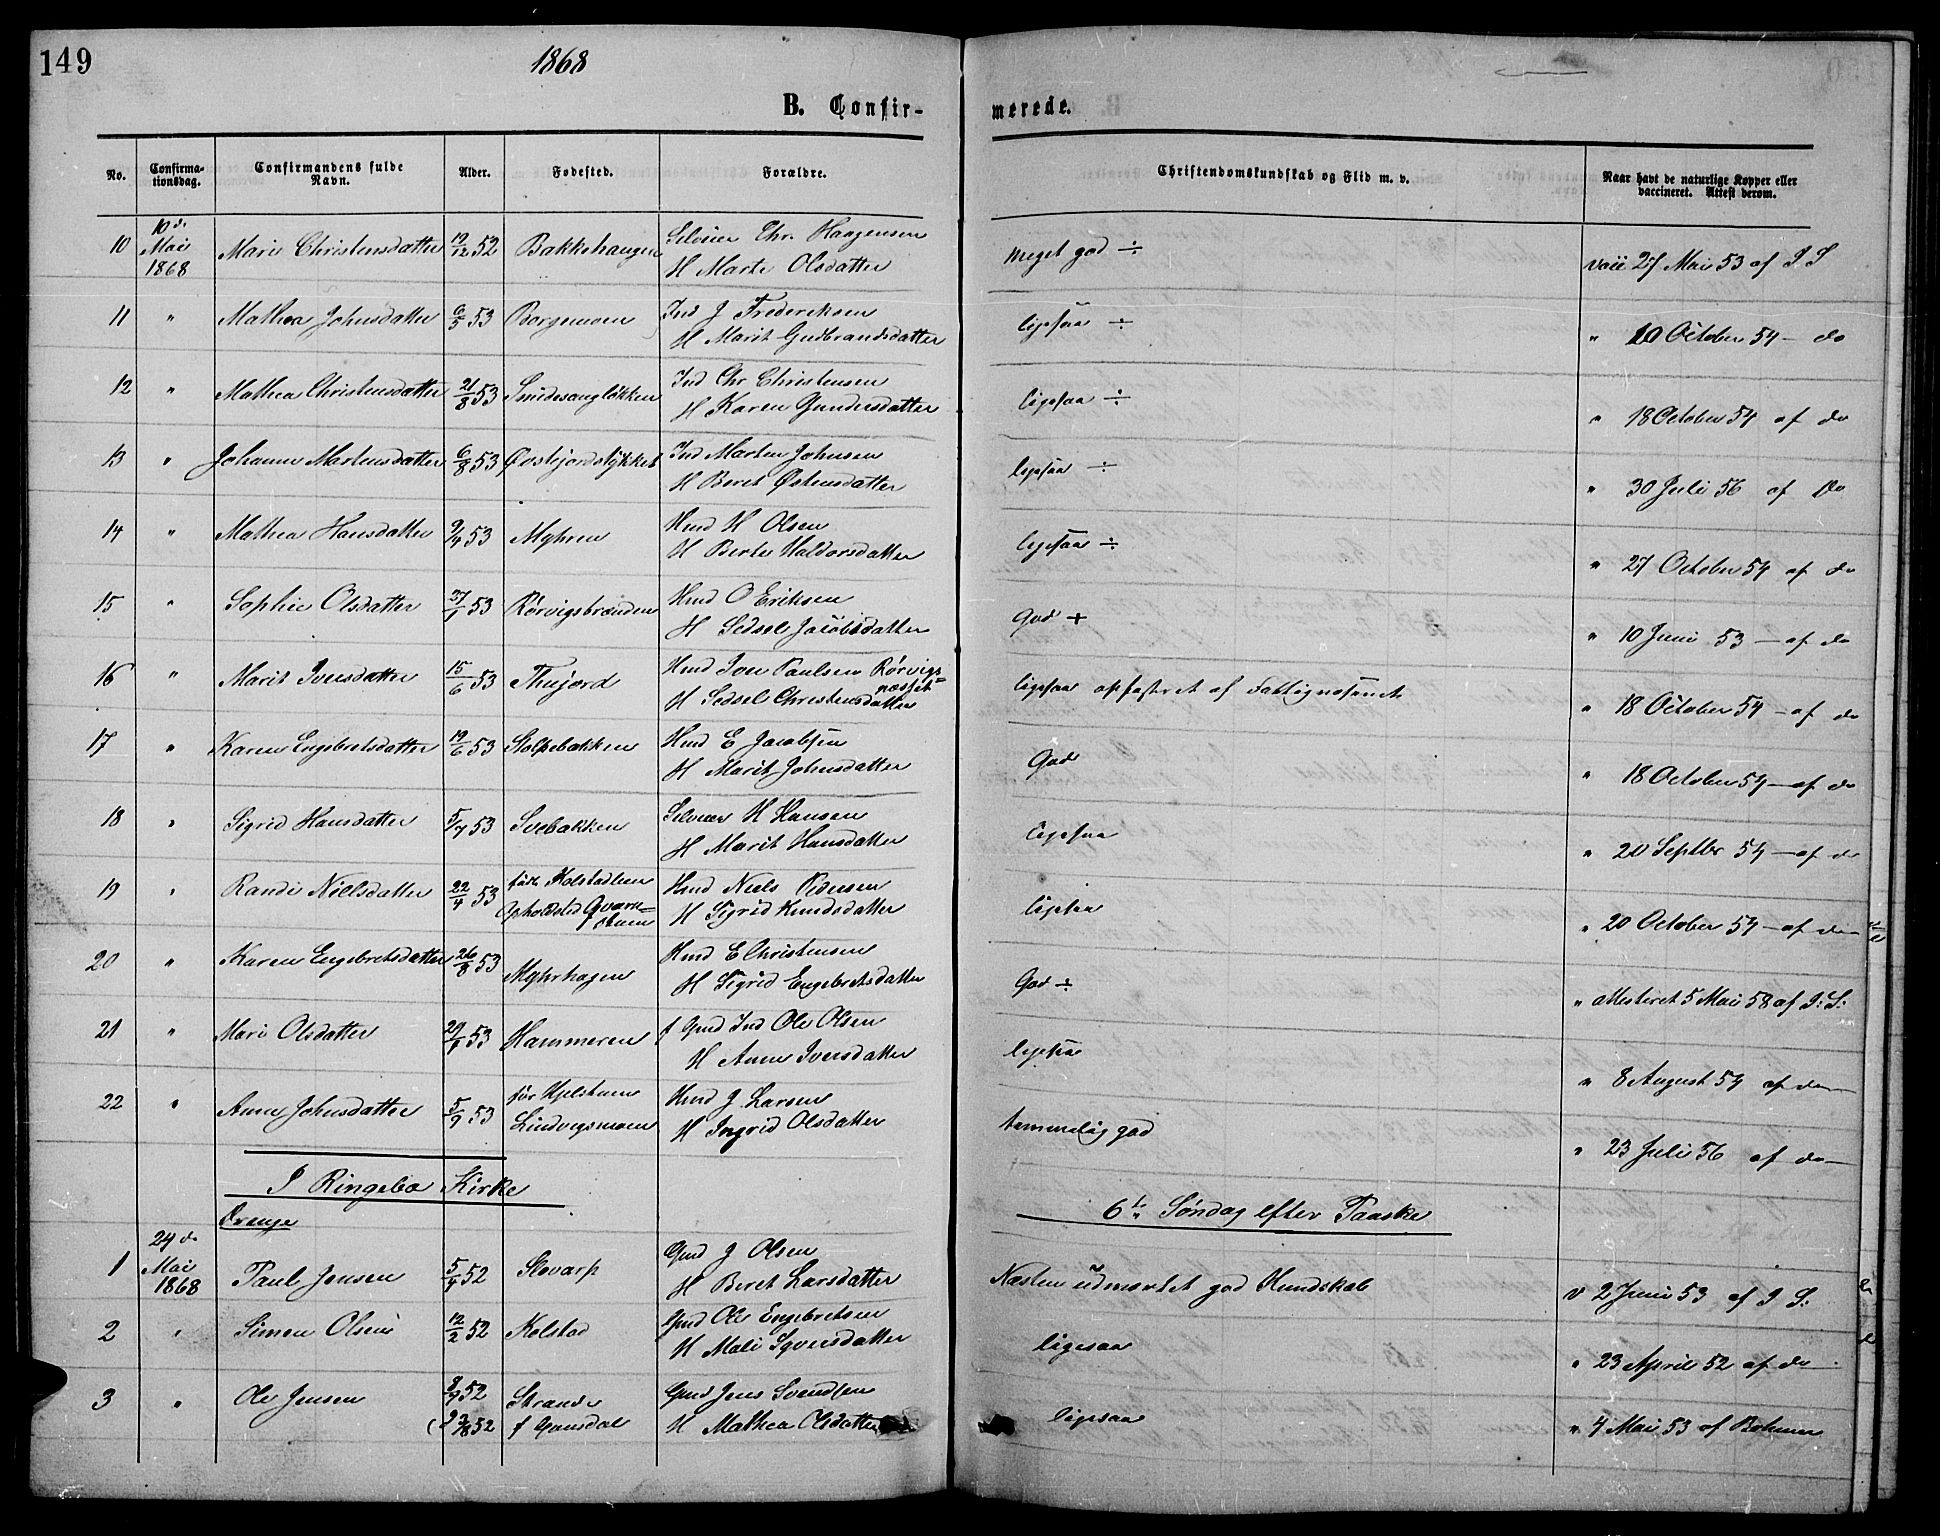 149
1868
B. Confir-
merede.
No.
Confirma-
tionsdag.
Confirmandens fulde
Navn.
Alder.
Fødested.
Forældre.
Christendomskundskab og Flid m. v.
Naar havt de naturlige Kopper eller
vaccineret. Attest derom.
10 10 de Mai 1868 Mari Christensdatter 19/12 52 Bakkehaugen Selveier Chr. Haagensen
H Marte Olsdatter
meget god ÷ vaii 27 Mai 53 af I S
11 " Mathea Johnsdatter 6/5 53 Borgemoen Ind J Frederiksen
H Marit Gudbrandsdatter
ligesaa ÷ " 10 October 54 - do
12 " Mathea Christensdatter 21/8 53 Ind Chr Christensen
H Karen Gundersdatter
ligesaa ÷ " 18 October 54 af do
13 " Johanne Martensdatter 6/8 53 Øvstejordstykket Ind Marten Johnsen
H Beret Østensdatter
ligesaa ÷ " 30 Juli 56 af Do
14 " Mathea Hansdatter 9/9 53 Myhren Hmd H Olsen
H Berte Haldorsdatter
ligesaa ÷ " 27 October 54 af do
15 " Sophie Olsdatter 27/1 53 Rørvigsbrænden Hmd O Eriksen
H Sedsel Jacobsdatter
God + " 10 Juni 53 - af do
16 " Marit Iversdatter 15/6 53 Thujord Hmd Iver Paulsen Rørvigs=
næsset
H Sedsel Christensdatter
ligesaa opfostret af Fattigvæsenet " 18 October 54 - af do
17 " Karen Engebretsdatter 19/6 53 Stolpebakken Hmd E Jacobsen
H Marit Johnsdatter
God " 18 October 54 - af do
18 " Sigrid Hansdatter 5/7 53 Svebakken Selveier H Hansen
H Marit Hansdatter
ligesaa " 20 Septbr 54 - af do
19 " Randi Nielsdatter 22/4 53 født Kolstadlien
Opholdsted Qværn=
stuen
Hmd Niels Pedersen
H Sigrid Knudsdatter
ligesaa " 20 October 54 - af do
20 " Karen Engebretsdatter 26/8 53 Myhrhagen Hmd E Christensen
H Sigrid Engebretsdatter
God ÷ " attesteret 5 Mai 58 af I: S:
21 " Mari Olsdatter 29/9 53 Hammeren f Gmd Ind Ole Olsen
H Anne Iversdatter
ligesaa " 8 August 54 af do
22 " Anne Johnsdatter 5/9 53 før
Lindvigsmoen
Hmd J Larsen
H Ingrid Olsdatter
temmelig god " 23 Juli 56 af do
I Ringebo Kirke
6te Søndag efter Paaske
Drenge
1 24 de Mai 1868 Paul Jensen 5/4 52 Skvarp Gmd J Olsen
H Beret Larsdatter
Næsten udmærket god Kundskab v 2 Juni 53 af I S:
2 " Simen Olsen 12/2 52 Kolstad Gmd Ole Engebretsen
H Mali Syversdatter
ligesaa " 23 April 52 af do
3 " Ole Jensen 8/9 52
52
Strande
f Gunsdal
Gmd Jens Svendsen
H Mathea Olsdatter
ligesaa " 4 Mai 53 af Bohmer